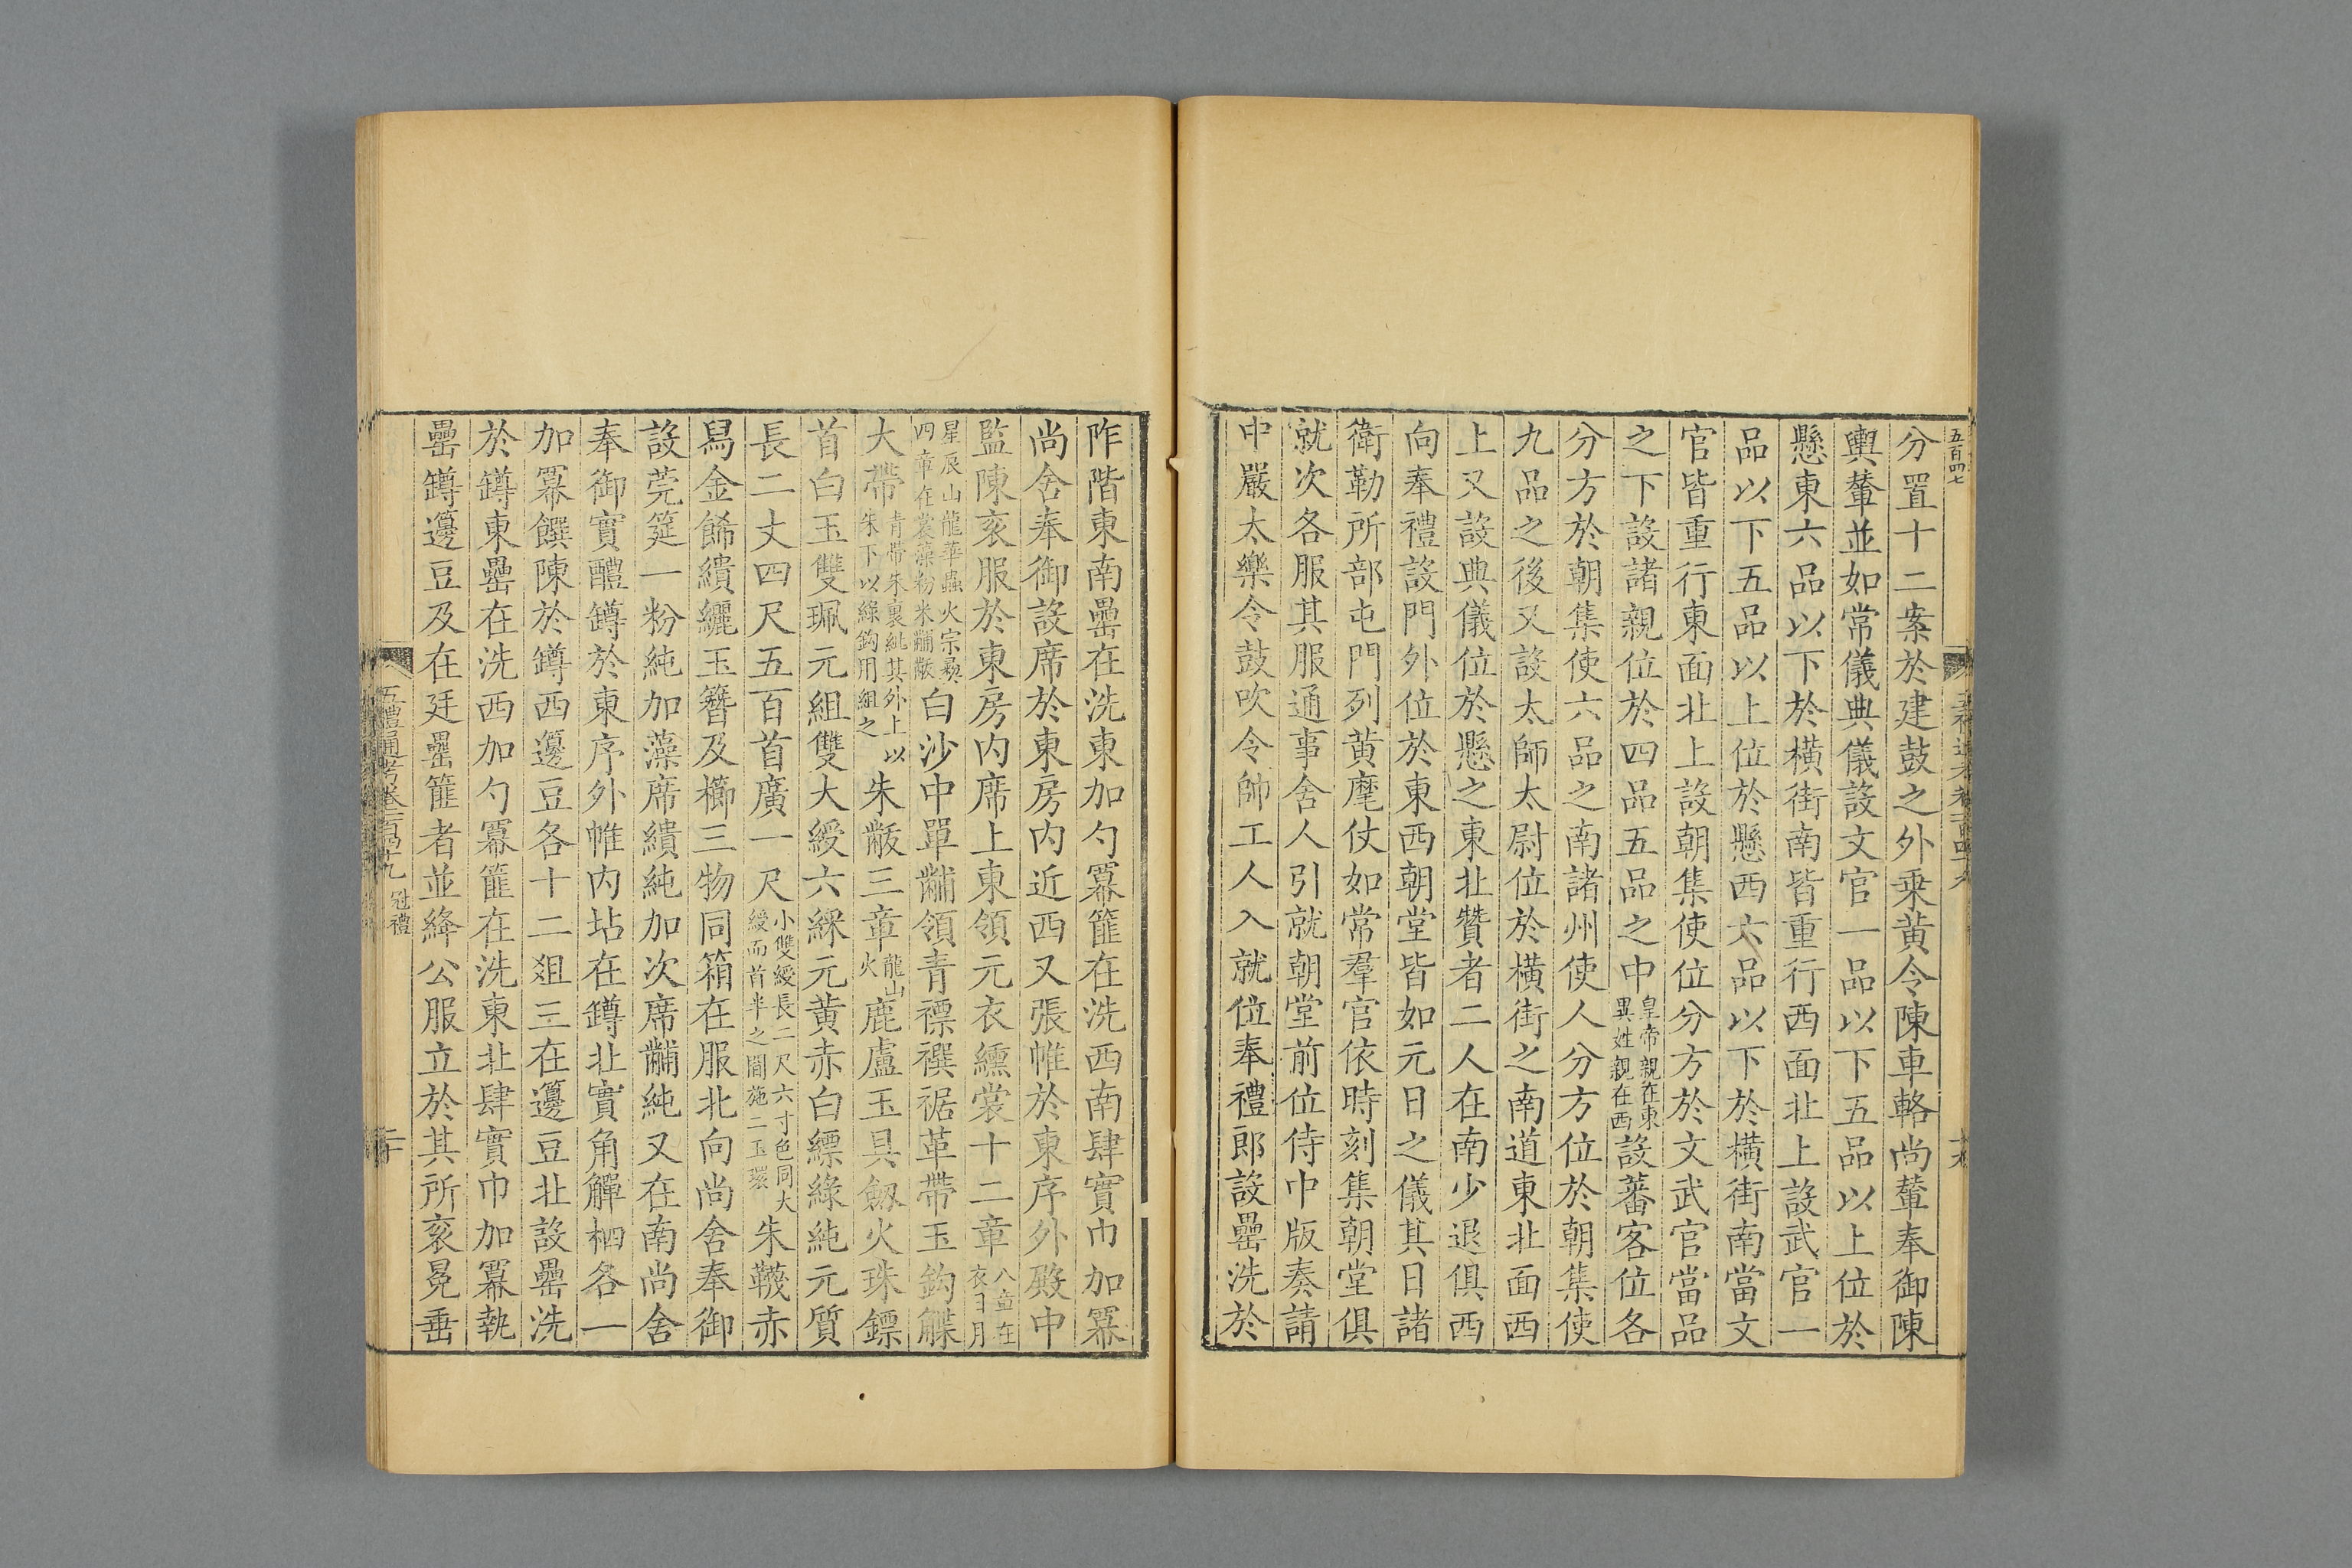 五百四七
分置十二案於建鼓之外乗黄令陳車輅尚輦奉御陳
輿輦並如常儀典儀設文官一品以下五品以上位於
懸東六品以下於橫街南皆重行西面北上設武官一
品以下五品以上位於懸西六品以下於橫街南當文
官皆重行東面北上設朝集使位分方於文武官當品
之下設諸親位於四品五品之中皇帝親在東異姓親在西設蕃客位各
分方於朝集使六品之南諸州使人分方位於朝集使
九品之後又設太師太尉位於橫街之南道東北面西
上又設典儀位於懸之東北贊者二人在南少退俱西
向奉禮設門外位於東西朝堂皆如元日之儀其日諸
衛勒所部屯門列黃麾仗如常羣官依時刻集朝堂俱
就次各服其服通事舍人引就朝堂前位侍中版奏請
中嚴太樂令鼓吹令帥工人入就位奉禮郎設罍洗於
阼階東南罍在洗東加勺冪篚在洗西南肆實巾加冪
尚舍奉御設席於東房内近西又張帷於東序外殿中
監陳袞服於東房内席上東領元衣纁裳十二章八章在衣日月
星辰山龍華蟲火宗彜四章在裳藻粉米黼黻白沙中單黼領青褾襈裾革帶玉鈎䚢
大帶青帶朱裏紕其外上以朱下以綠鈎用組之朱黻三章龍山火鹿盧玉具劔火珠鏢
首白玉雙珮元組雙大綬六綵元黃赤白縹綠純元質
長二丈四尺五百首廣一尺小雙綬長二尺六寸色同大綬而首半之間施二玉環朱韈赤
舄金餙繢纚玉簪及櫛三物同箱在服北向尚舍奉御
設莞筵一粉純加藻席繢純加次席黼純又在南尚舍
奉御實醴罇於東序外帷内坫在罇北實角觶柶各一
加冪饌陳於罇西籩豆各十二俎三在籩豆北設罍洗
於罇東罍在洗西加勺冪篚在洗東北肆實巾加冪執
罍罇籩豆及在廷罍篚者並絳公服立於其所袞冕垂
五禮通考卷一百四十九 冠禮
二十